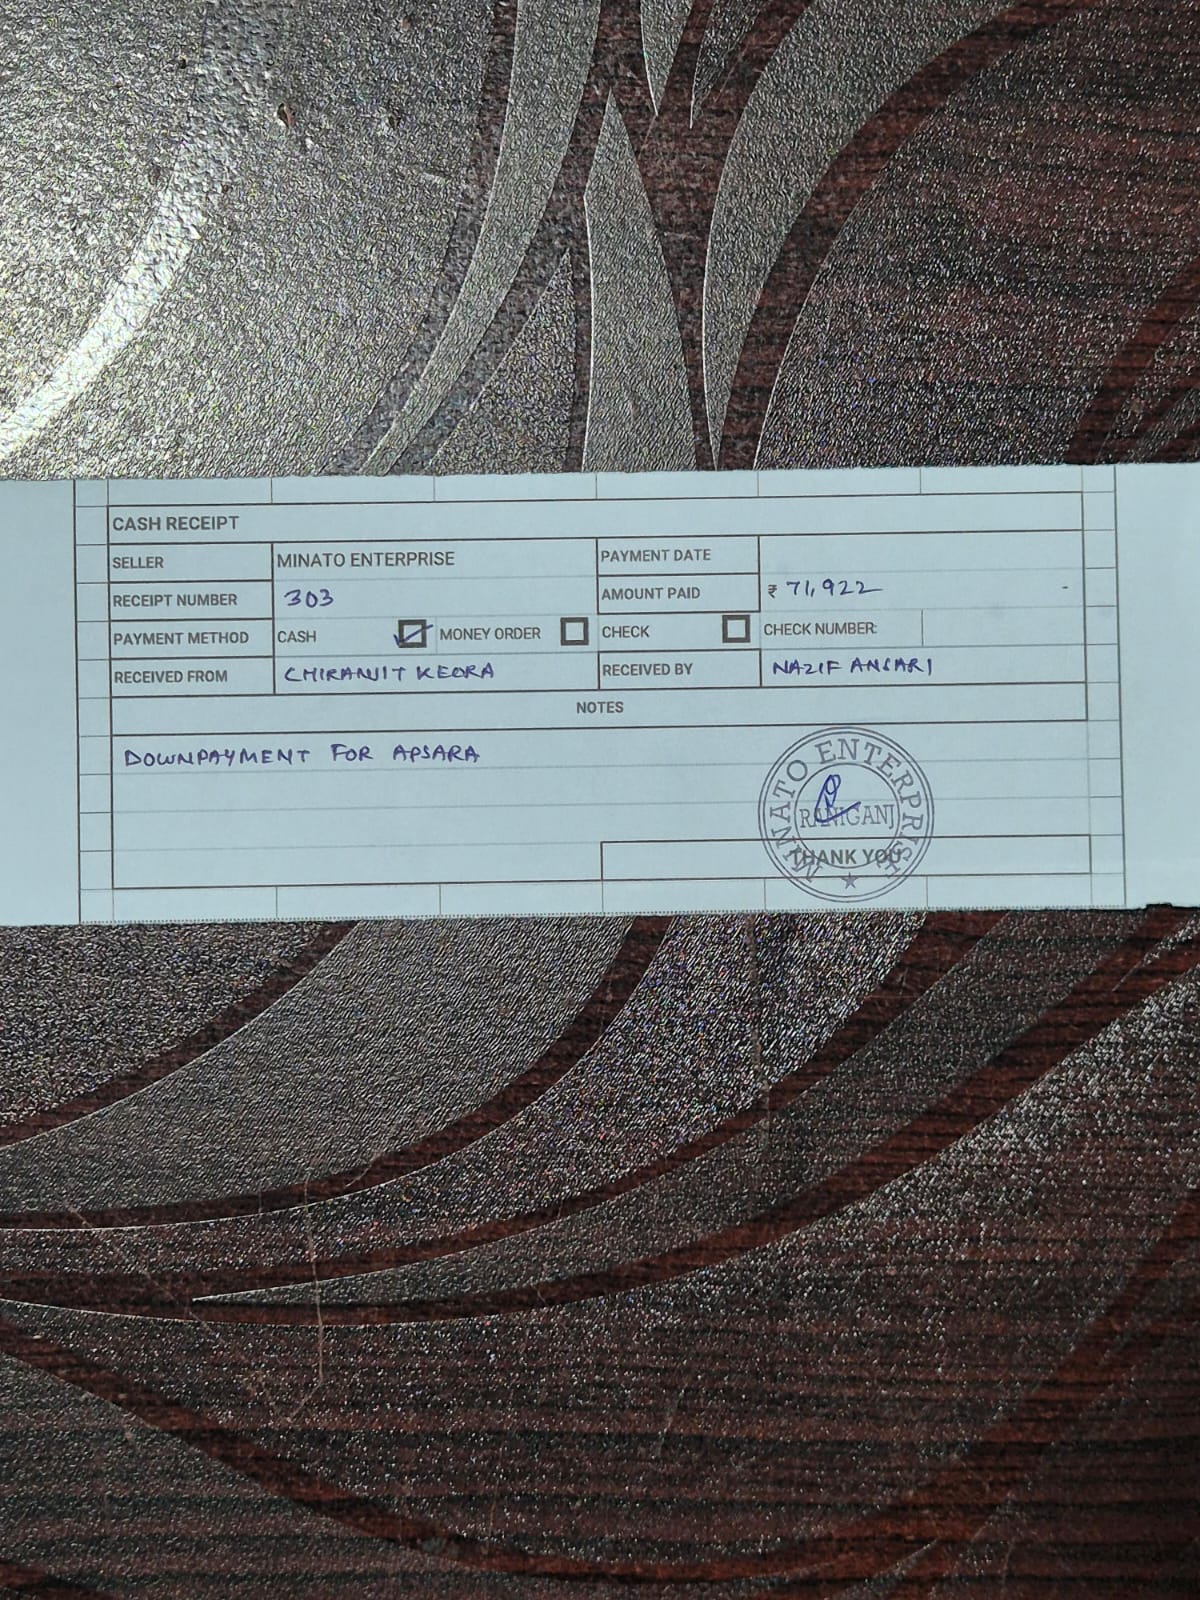 CASH RECEIPT
SELLER MINATO ENTERPRISE PAYMENT DATE
RECEIPT NUMBER 303 AMOUNT PAID ₹ 71,922 -
PAYMENT METHOD CASH MONEY ORDER CHECK CHECK NUMBER:
RECEIVED FROM CHIRANJIT KEORA RECEIVED BY NAZIF ANSARI
NOTES
DOWNPAYMENT FOR APSARA
MINATO ENTERPRISE
RANIGANJ
THANK YOU